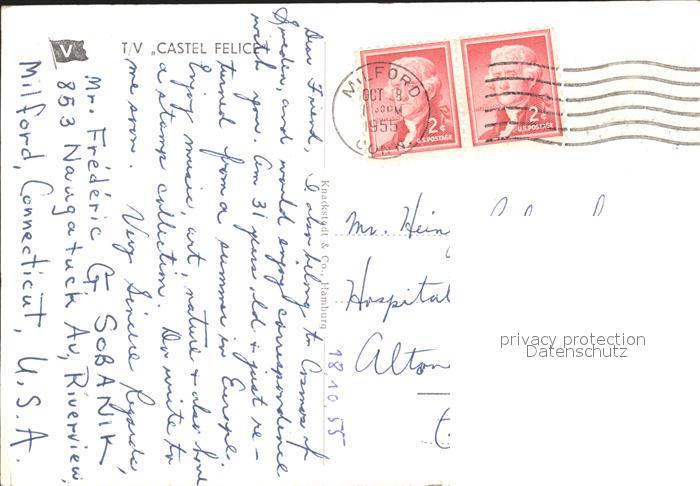 T/V „CASTEL FELICE
Dear Friend, I also belong to Cosmos of
Sweden, and would enjoy correspondence
with you. Am 31 years old + just re-
turned from a summer in Europe.
Enjoy music, art, nature + also have
a stamp collection. Do write to
me soon. Very Sincere Regards,
Mr. Frédéric G. SOBANIK
853 Naugatuck Av, Riverview,
Milford, Connecticut, U.S.A.
V
Knackstedt & Co., Hamburg
18.10.55
MILFORD
OCT 8
1955
CONN.
2¢
U.S. POSTAGE
2¢
U.S. POSTAGE
Mr. Hein
Hospital
Alton
privacy protection
Datenschutz